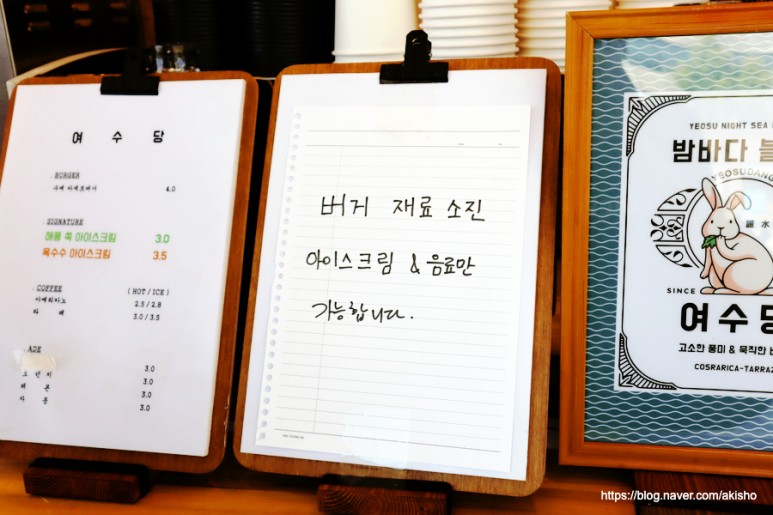 여 수 당
. BURGER
수제 바게트버거 4.0
. SIGNATURE
해풍 쑥 아이스크림 3.0
옥수수 아이스크림 3.5
. COFFEE (HOT / ICE)
아메리카노 2.5 / 2.8
라 떼 3.0 / 3.5
. ADE
오 렌 지 3.0
레 몬 3.0
자 몽 3.0
버거 재료 소진
아이스크림 & 음료만
가능합니다.
YEOSU NIGHT SEA
밤바다
YEOSUDANG
麗 水
SINCE
여수당
고소한 풍미 & 묵직한
COSRARICA-TARRAZ
https://blog.naver.com/akisho